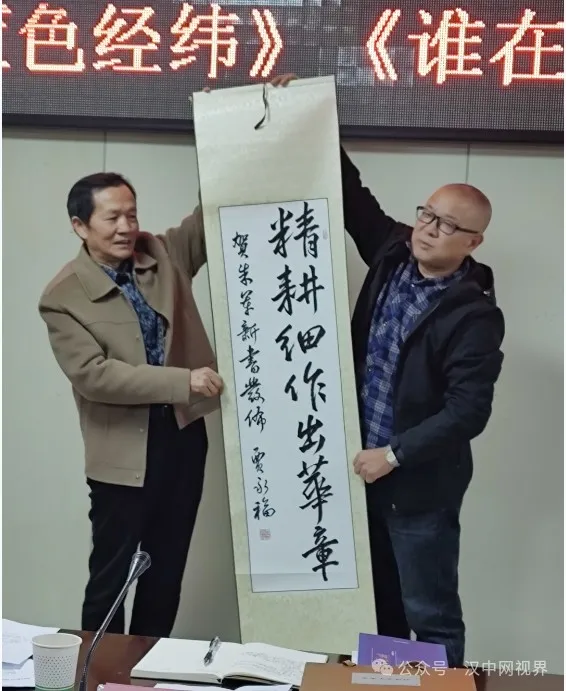 色经纬》 《谁在
精耕细作出華章
贺朱军新書發佈
贾永福
公众号·汉中网视界